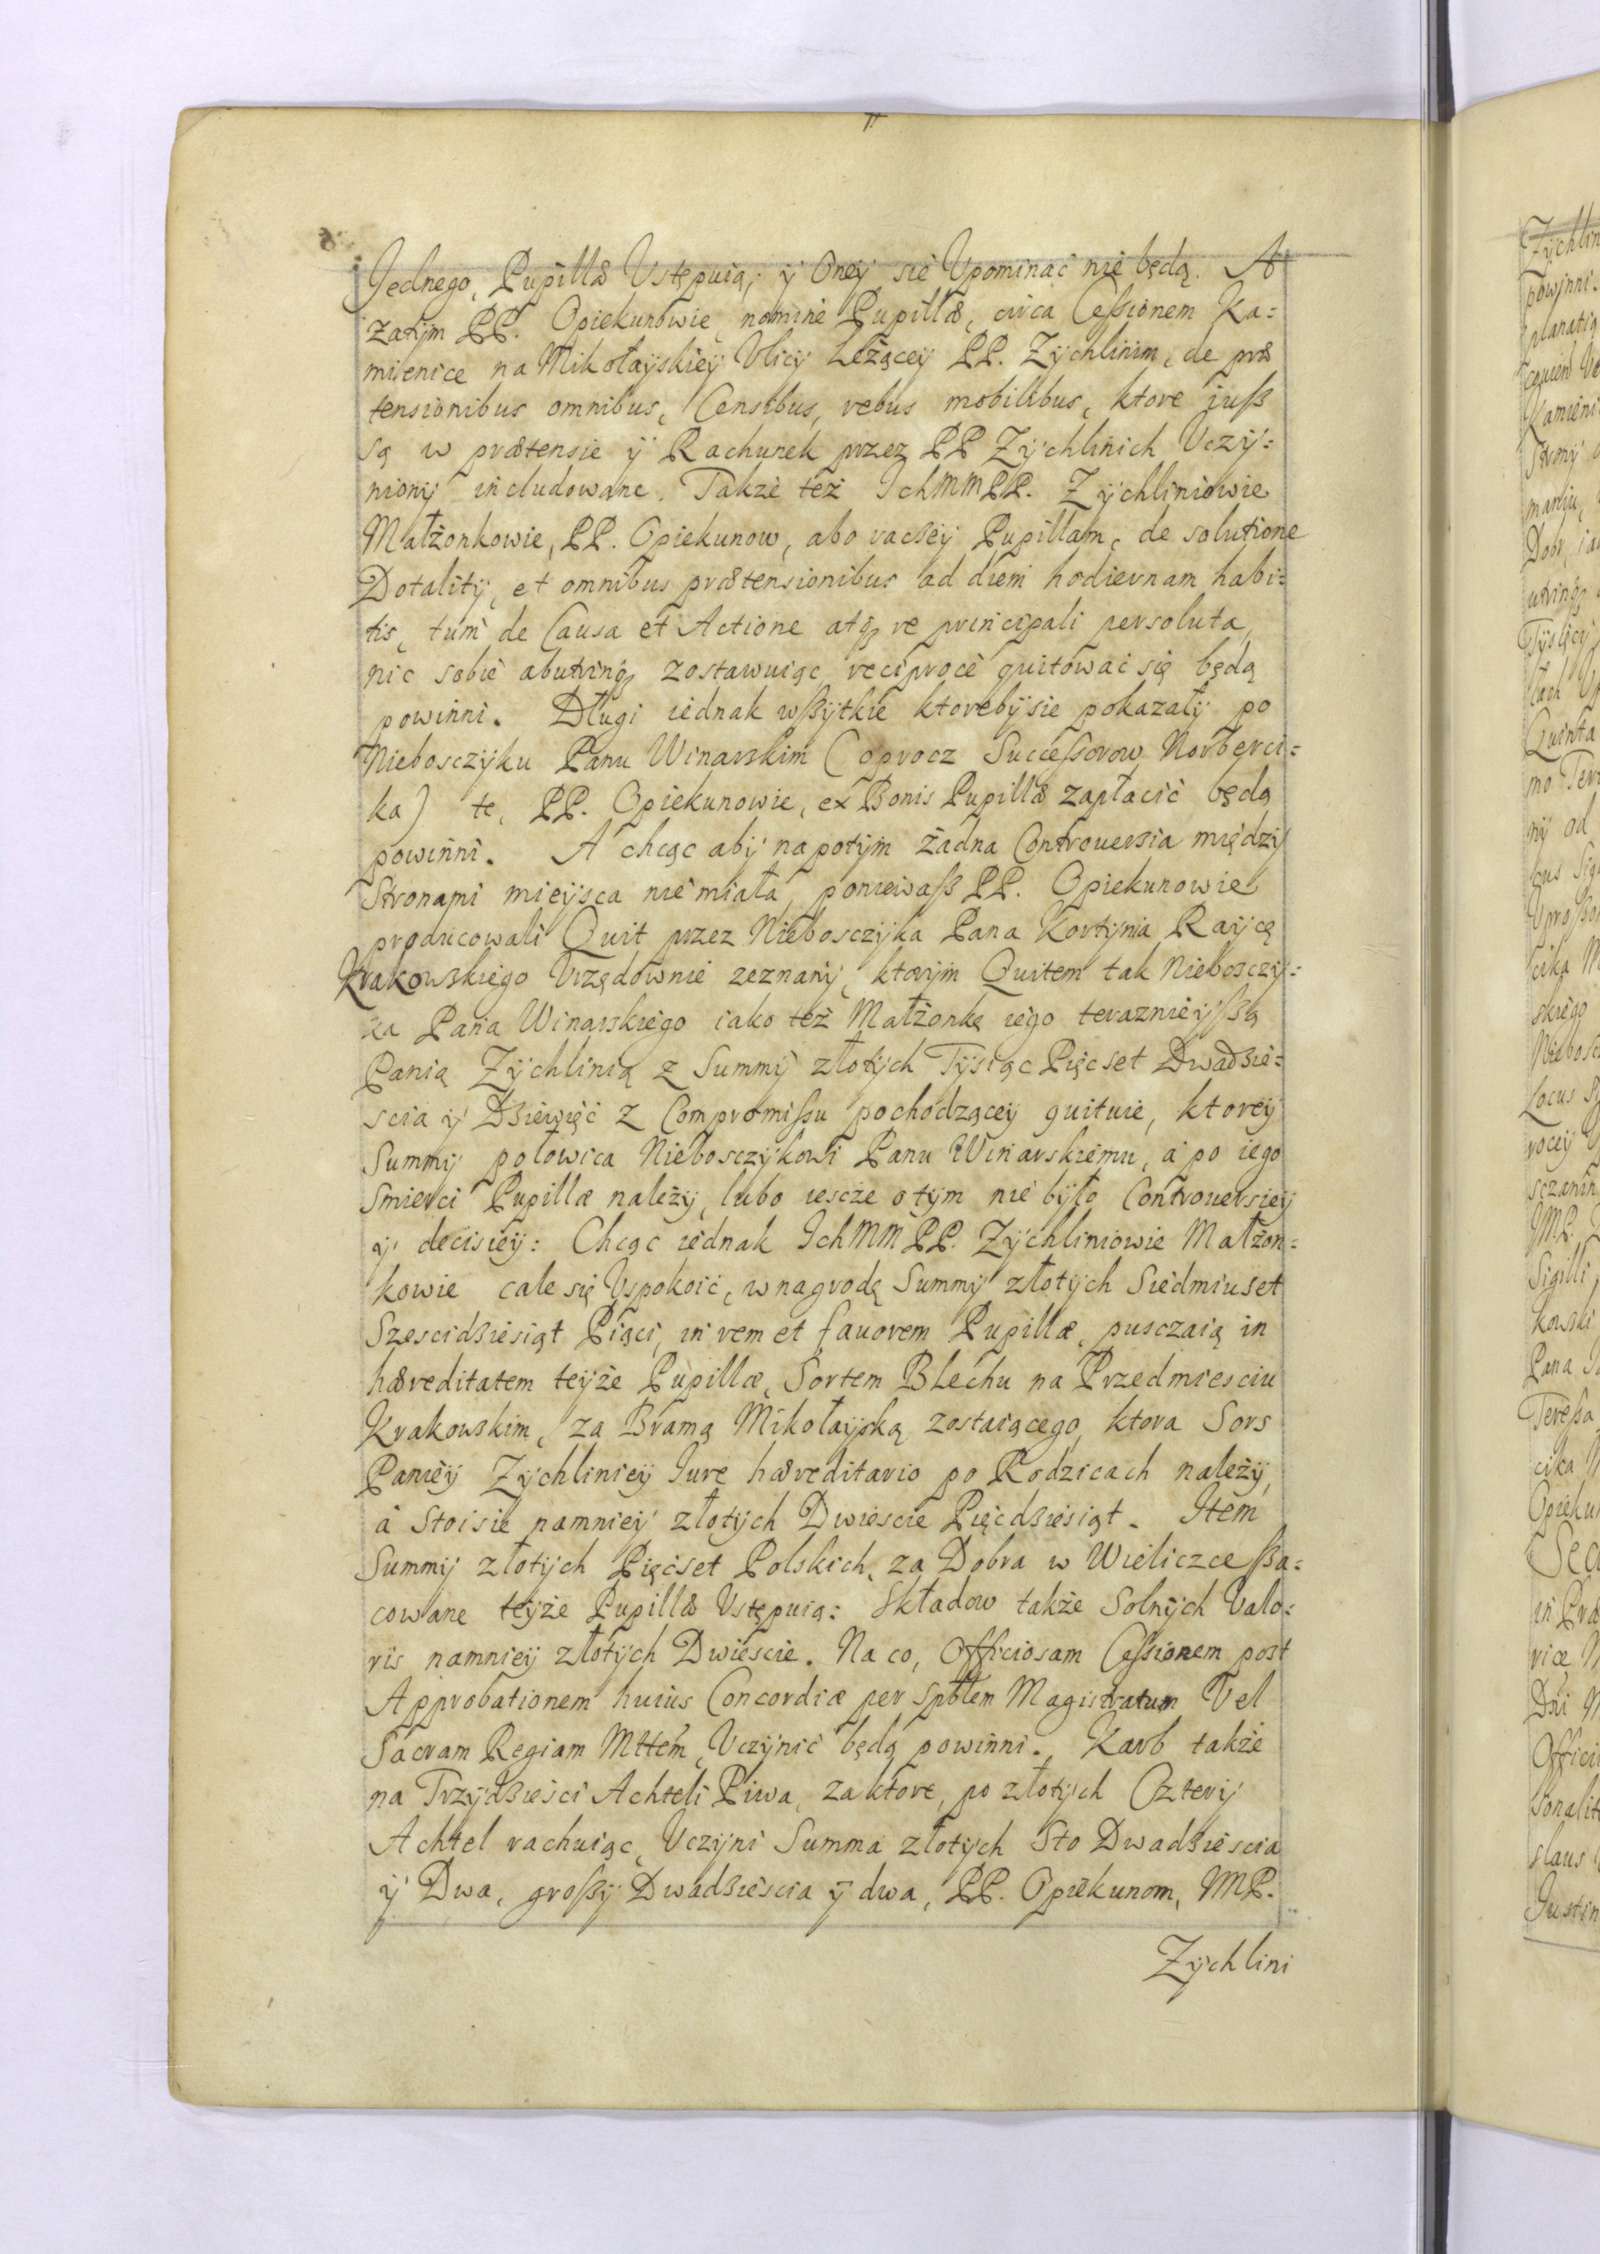 Jednego, Pupillæ Vstępuią, ÿ Oneÿ się Vpominać nie będą. A
zatÿm PP. Opiekunowie, nomine Pupillæ, circa Ceßionem Ka=
mienice na Mikołaÿskieÿ Vlicÿ Leżąceÿ PP. Zÿchlinim, de præ
tensionibus omnibus, Censibus, rebus mobilibus, ktore iuß
są w prætensie ÿ Rachunek przez PP Zÿchlinich Vczÿ=
nionÿ includowane. Takze też IchMMPP. Zÿchliniowie
Małżonkowie, PP. Opiekunow, abo raczeÿ Pupillam, de solutione
Dotalitÿ, et omnibus prætensionibus ad diem hodiernam habi=
tis, tum de Causa et Actione atq re principali persoluta,
nic sobie abutrinq zostawuiąc reciproce quitować się będą
powinni. Długi iednak wßÿtkie ktorebÿsie pokazałÿ po
Nieboszczÿku Panu Winarskim (oprocz Succeßorow Norberci=
ka) te, PP. Opiekunowie, ex Bonis Pupillæ zapłacić będą
powinni. A chcąc abÿ napotÿm żadna Controuersia międzÿ
Stronami mieÿsca nie miała, ponieważ PP. Opiekunowie
producowali Quit przez Niebosczÿka Pana Kortÿnia Raÿcę
Krakowskiego Vrzędownie zeznanÿ, ktorÿm Quitem tak Niebosczÿ=
ka Pana Winarskiego iako też Małżonkę iego teraznieÿßą
Panią Zÿchlinią z Summÿ złotÿch Tÿsiąc Pięcset Dwadzie=
scia ÿ Dziewięć z Compromißu pochodząceÿ quituie, ktoreÿ
Summÿ połowica Niebosczÿkowi Panu Winarskiemu, a po iego
Smierci Pupillæ należÿ, lubo iescze o tÿm nie bÿło Controuersieÿ
ÿ decisieÿ: Chcąc iednak IchMM PP. Zÿchliniowie Małżon=
kowie cale się Vspokoić, w nagrodę Summÿ złotÿch Siedmiuset
Szescidziesiąt Piąci, in rem et fauorem Pupillæ, pusczaią in
hæreditatem teÿże Pupillæ, Sortem Blechu na Przedmiesciu
Krakowskim, za Bramą Mikołaÿską zostaiącego, ktora Sors
Panieÿ Zÿchlinieÿ Iure hæreditario po Rodzicach należÿ,
a Stoisie namnieÿ złotÿch Dwiescie Pięcdziesiąt. Item
Summÿ złotÿch Pięćset Polskich, za Dobra w Wieliczce ßa=
cowane teÿże Pupillæ Vstępuią: Składow także Solnÿch Valo=
ris namnieÿ złotÿch Dwiescie. Na co, Officiosam Ceßionem post
Approbationem huius Concordiæ per Spblem Magistratum Vel
Sacram Regiam Mttem, Vczÿnić będą powinni. Karb także
na Trzÿdziesci Achteli Piwa, za ktore, po złotÿch Czterÿ
Achtel rachuiąc, Vczÿni Summa złotÿch Sto Dwadziescia
ÿ Dwa, großÿ Dwadziescia ÿ dwa, PP. Opiekunom, IMP.
Zÿchlini